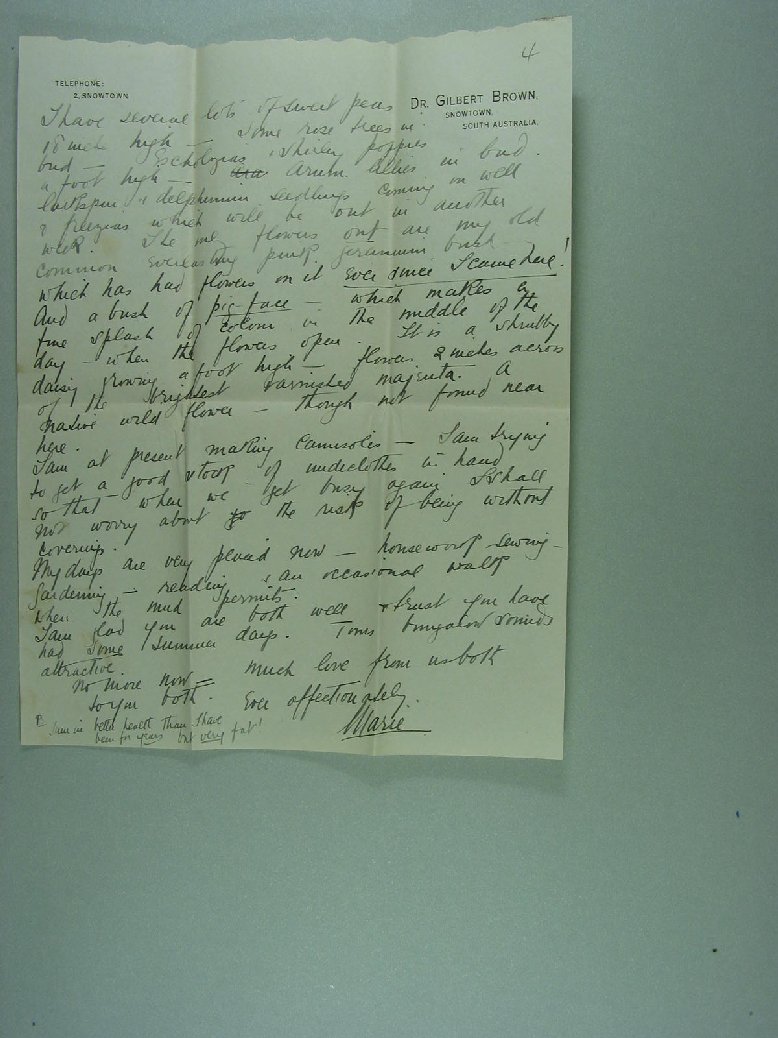 4
TELEPHONE:
2, SNOWTOWN.
DR. GILBERT BROWN.
SNOWTOWN,
SOUTH AUSTRALIA.
I have several lots of sweet peas
18 inch high — some rose trees in
bud — Escholzias, Shirley poppies
a foot high — Arum lilies in bud.
larkspur & delphinium seedlings coming on well
& freezias which will be out in another
week. The only flowers out are my old
common everlasting pink geranium bush
which has had flowers on it ever since I came here!
And a bush of pig-face — which makes a
fine splash of colour in the middle of the
day — when the flowers open. It is a shrubby
daisy growing a foot high — flowers 2 inches across
of the brightest varnished majenta. A
native wild flower — though not found near
here.
I am at present making Camisoles — I am trying
to get a good stock of underclothes in hand
so that when we get busy again I shall
not worry about the risk of being without
coverings.
My days are very placid now — housework — sewing —
gardening — reading & an occasional walk
when the mud permits.
I am glad you are both well & trust you have
had some summer days. Toms bungalow sounds
attractive.
No more now — much love from us both
to you both. Ever affectionately,
Marie
I am in better health than I have
been for years but very fat!